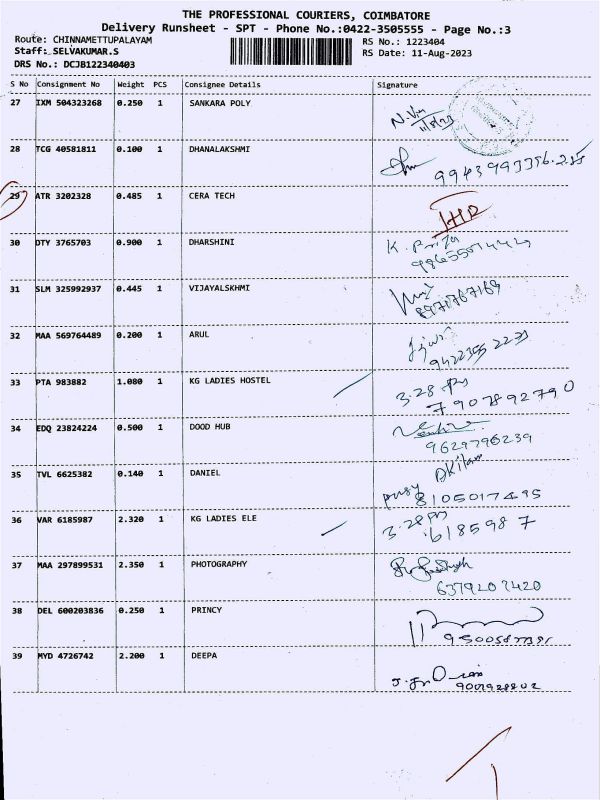 THE PROFESSIONAL COURIERS, COIMBATORE
Delivery Runsheet - SPT - Phone No.:0422-3505555 - Page No.:3
Route: CHINNAMETTUPALAYAM RS No.: 1223404
Staff: SELVAKUMAR.S RS Date: 11-Aug-2023
DRS No.: DCJB122340403
S No Consignment No Weight PCS Consignee Details Signature
27 IXM 504323268 0.250 1 SANKARA POLY
28 TCG 40581811 0.100 1 DHANALAKSHMI
29 ATR 3202328 0.485 1 CERA TECH
30 DTY 3765703 0.900 1 DHARSHINI K. Priya
31 SLM 325992937 0.445 1 VIJAYALSKHMI
8971767169
32 MAA 569764489 0.200 1 ARUL
33 PTA 983882 1.080 1 KG LADIES HOSTEL 3.28 pm
7907892790
34 EDQ 23824224 0.500 1 DOOD HUB
9629796239
35 TVL 6625382 0.140 1 DANIEL
8105017495
36 VAR 6185987 2.320 1 KG LADIES ELE 3.28 pm
6185987
37 MAA 297899531 2.350 1 PHOTOGRAPHY
6379207420
38 DEL 600203836 0.250 1 PRINCY
39 MYD 4726742 2.200 1 DEEPA